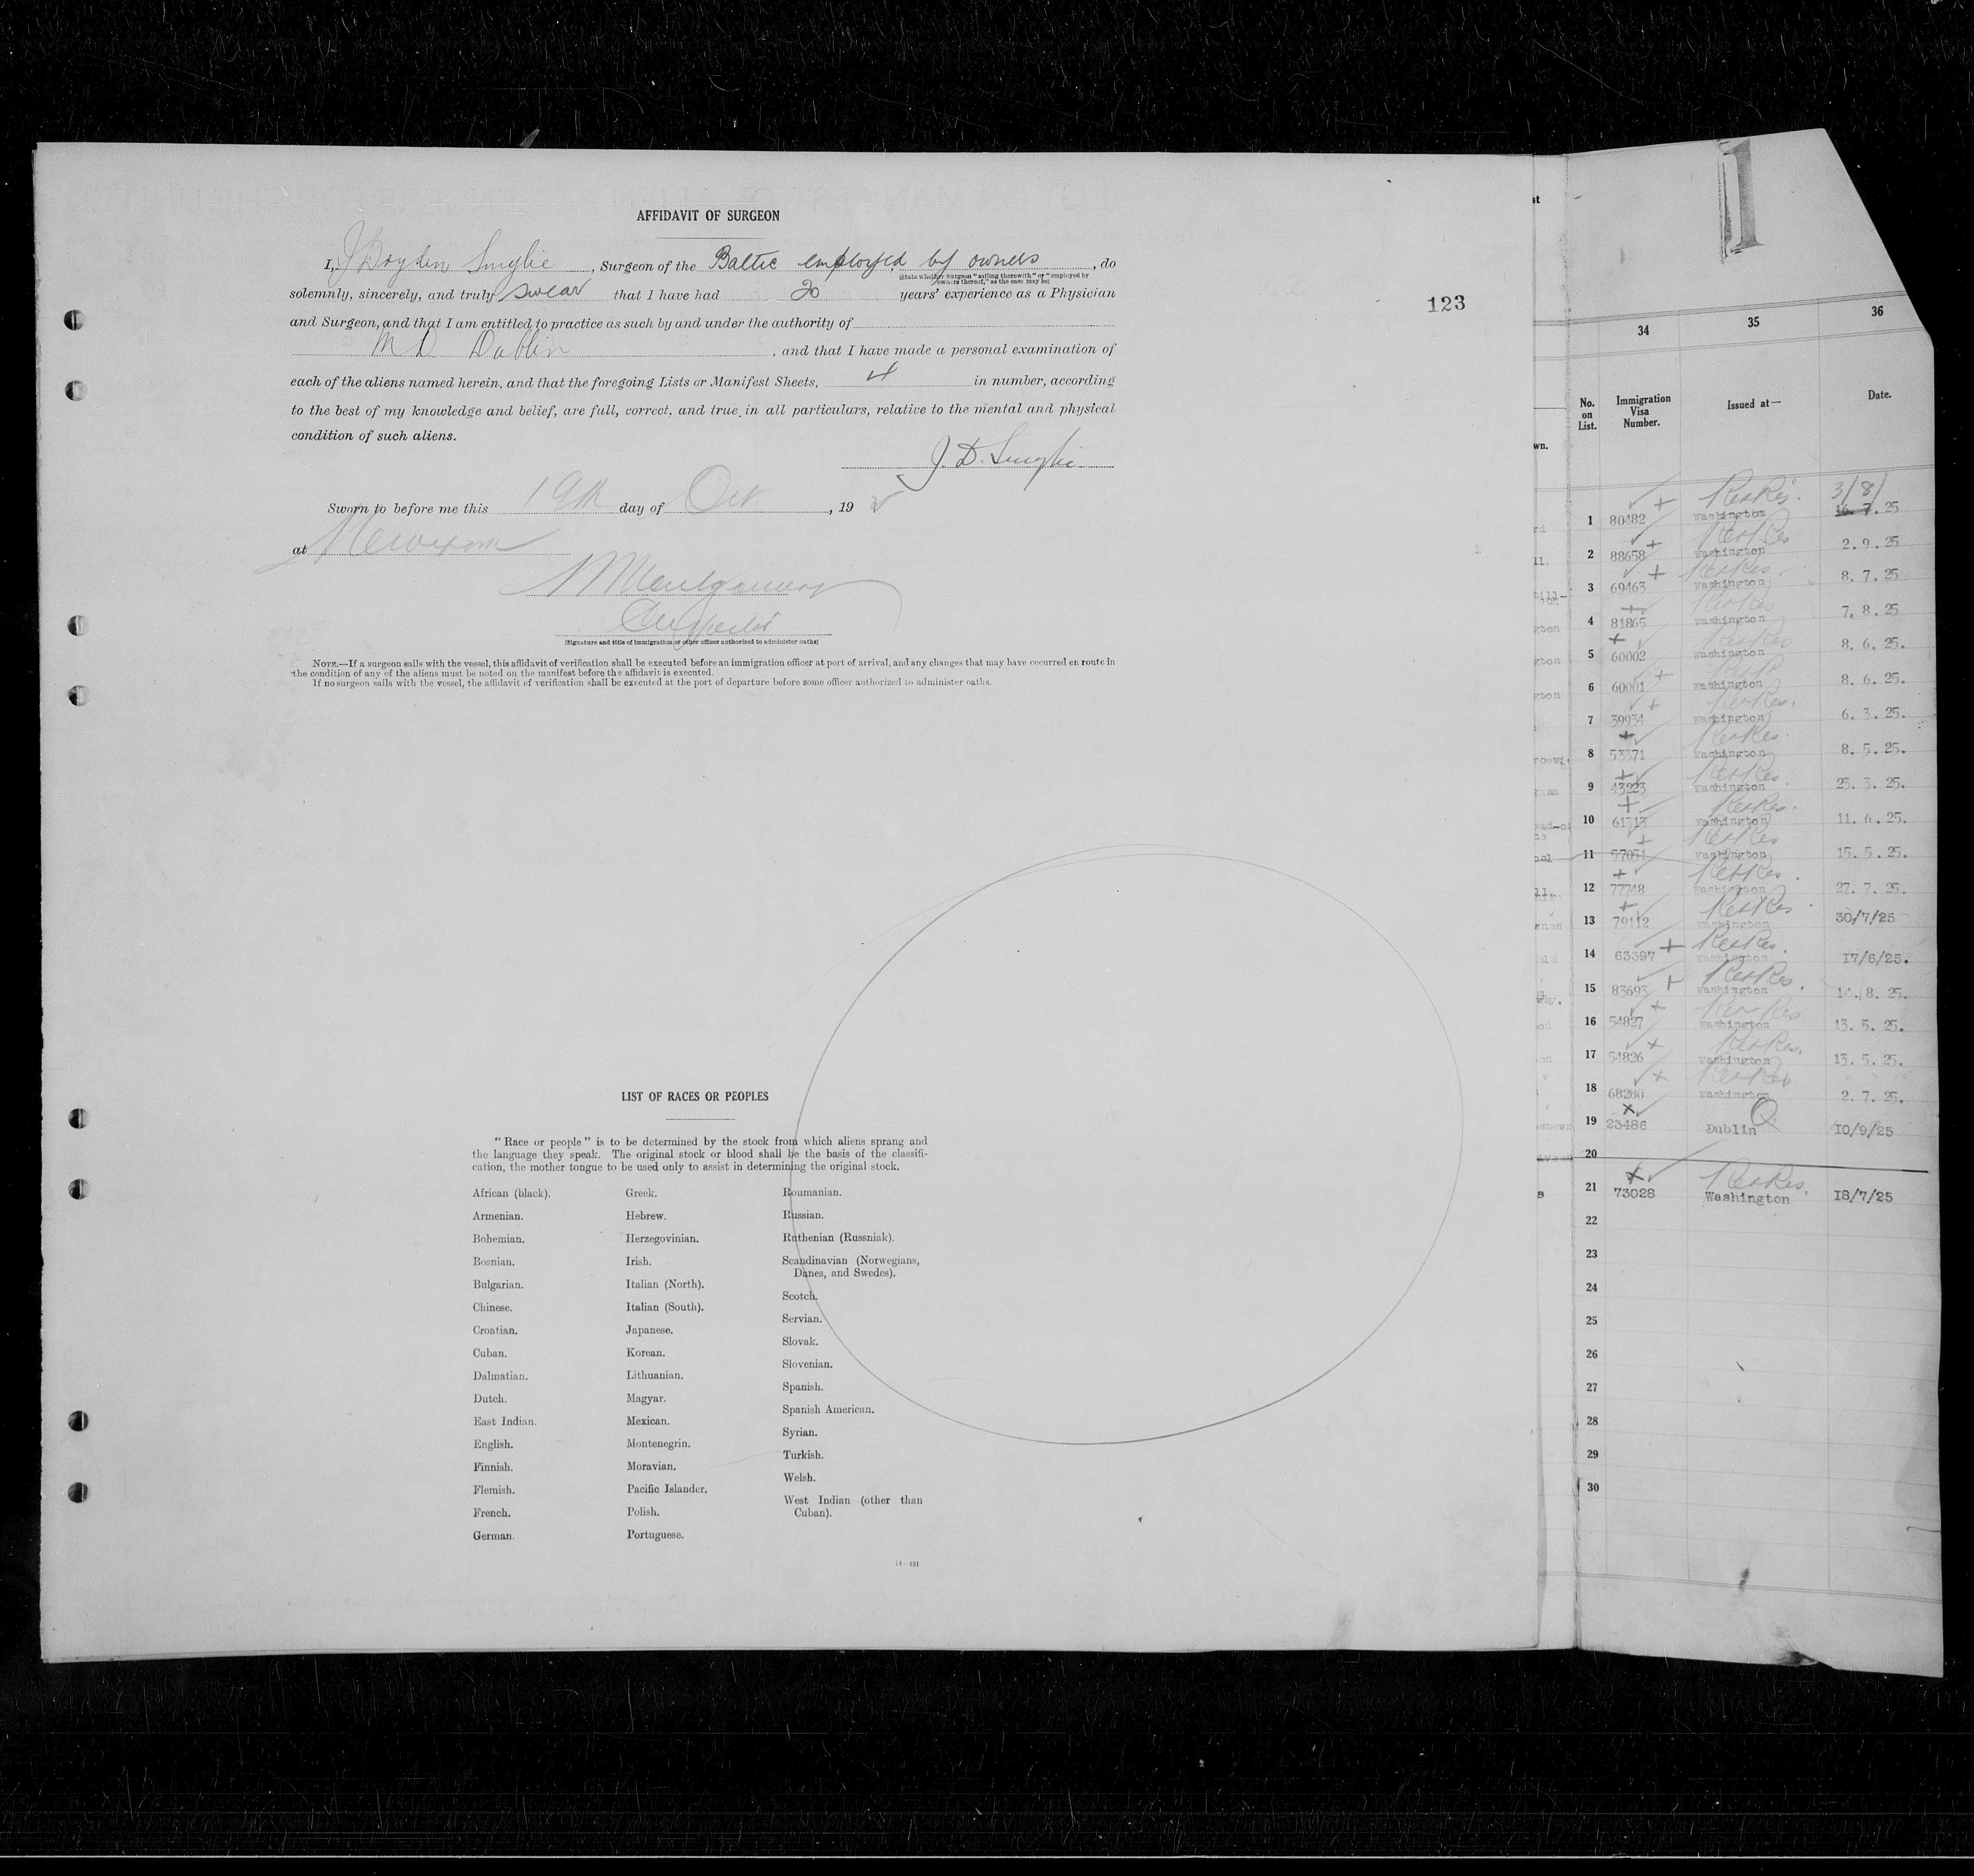 AFFIDAVIT OF SURGEON
I, J Dryden Smylie, Surgeon of the Baltic employed by owners, do
(State whether Surgeon "sailing therewith" or "employed by
owners thereof," as the case may be)
solemnly, sincerely, and truly swear that I have had 20 years' experience as a Physician
and Surgeon, and that I am entitled to practice as such by and under the authority of
M D Dublin, and that I have made a personal examination of
each of the aliens named herein, and that the foregoing Lists or Manifest Sheets, 4 in number, according
to the best of my knowledge and belief, are full, correct, and true, in all particulars, relative to the mental and physical
condition of such aliens.
J. D. Smylie
Sworn to before me this 19th day of Oct, 19
at New York
Montgomery
Inspector
(Signature and title of immigration or other officer authorized to administer oaths)
NOTE.—If a surgeon sails with the vessel, this affidavit of verification shall be executed before an immigration officer at port of arrival, and any changes that may have occurred en route in
the condition of any of the aliens must be noted on the manifest before the affidavit is executed.
If no surgeon sails with the vessel, the affidavit of verification shall be executed at the port of departure before some officer authorized to administer oaths.
123
LIST OF RACES OR PEOPLES
"Race or people" is to be determined by the stock from which aliens sprang and
the language they speak. The original stock or blood shall be the basis of the classifi-
cation, the mother tongue to be used only to assist in determining the original stock.
African (black).
Armenian.
Bohemian.
Bosnian.
Bulgarian.
Chinese.
Croatian.
Cuban.
Dalmatian.
Dutch.
East Indian.
English.
Finnish.
Flemish.
French.
German.
Greek.
Hebrew.
Herzegovinian.
Irish.
Italian (North).
Italian (South).
Japanese.
Korean.
Lithuanian.
Magyar.
Mexican.
Montenegrin.
Moravian.
Pacific Islander.
Polish.
Portuguese.
Roumanian.
Russian.
Ruthenian (Russniak).
Scandinavian (Norwegians,
Danes, and Swedes).
Scotch.
Servian.
Slovak.
Slovenian.
Spanish.
Spanish American.
Syrian.
Turkish.
Welsh.
West Indian (other than
Cuban).
14—431
34 35 36
No. on List. Immigration Visa Number. Issued at— Date.
1 80482 Washington 3/8/ 16.7.25
2 88658 Washington 2.9.25
3 69463 Washington 8.7.25
4 81865 Washington 7.8.25
5 60002 Washington 8.6.25.
6 60001 Washington 8.6.25.
7 39934 Washington 6.3.25.
8 53371 Washington 8.5.25.
9 43223 Washington 25.3.25.
10 61313 Washington 11.6.25.
11 57051 Washington 15.5.25.
12 77748 Washington 27.7.25.
13 79112 Washington 30/7/25
14 63397 Washington 17/6/25.
15 83693 Washington 14.8.25.
16 54827 Washington 13.5.25.
17 54826 Washington 13.5.25.
18 68280 Washington 2.7.25.
19 23486 Dublin 10/9/25
20
21 73028 Washington 18/7/25
22
23
24
25
26
27
28
29
30